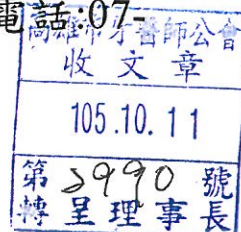 電話:07-
高雄市牙醫師公會
收文章
105.10.11
第3990號
轉呈理事長